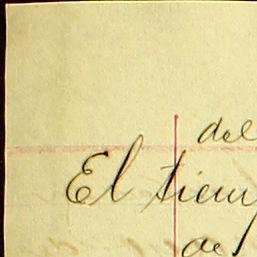 del
El tiem
de